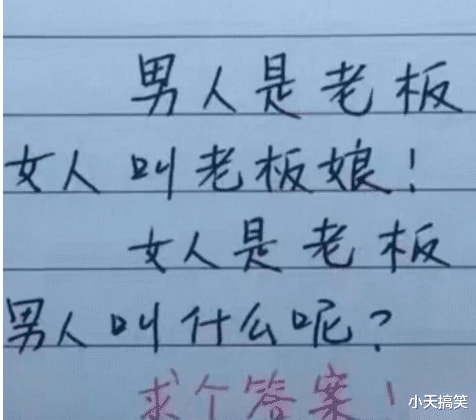 男人是老板
女人叫老板娘！
女人是老板
男人叫什么呢？
求个答案！
小天搞笑